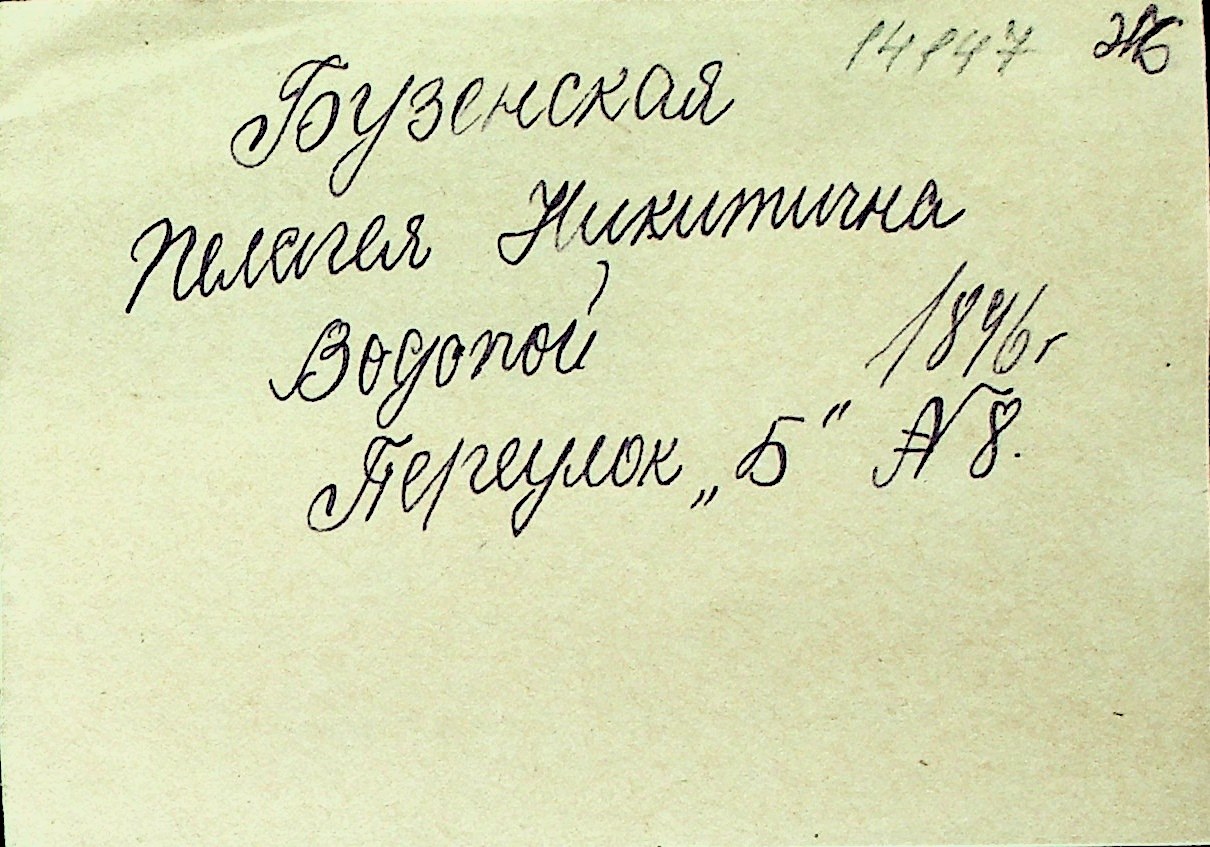 14147
Бузенская
Пелагея Никитична
Водопой 1896 г
Переулок „Б“ № 8.